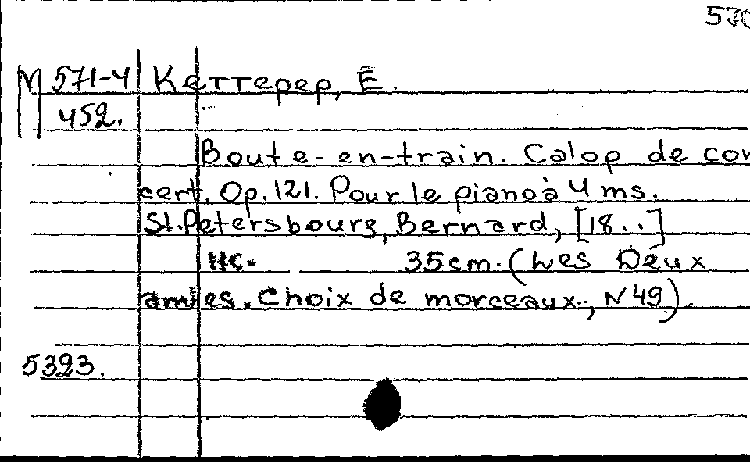 570
М 571-4 Кеттерер, Е.
452.
Boute-en-train. Galop de con
cert. Op. 121. Pour le piano à 4 ms.
St. Petersbourg, Bernard, [18..]
нс. 35 cm. (Les Deux
amies. Choix de morceaux., N 49)
5323.